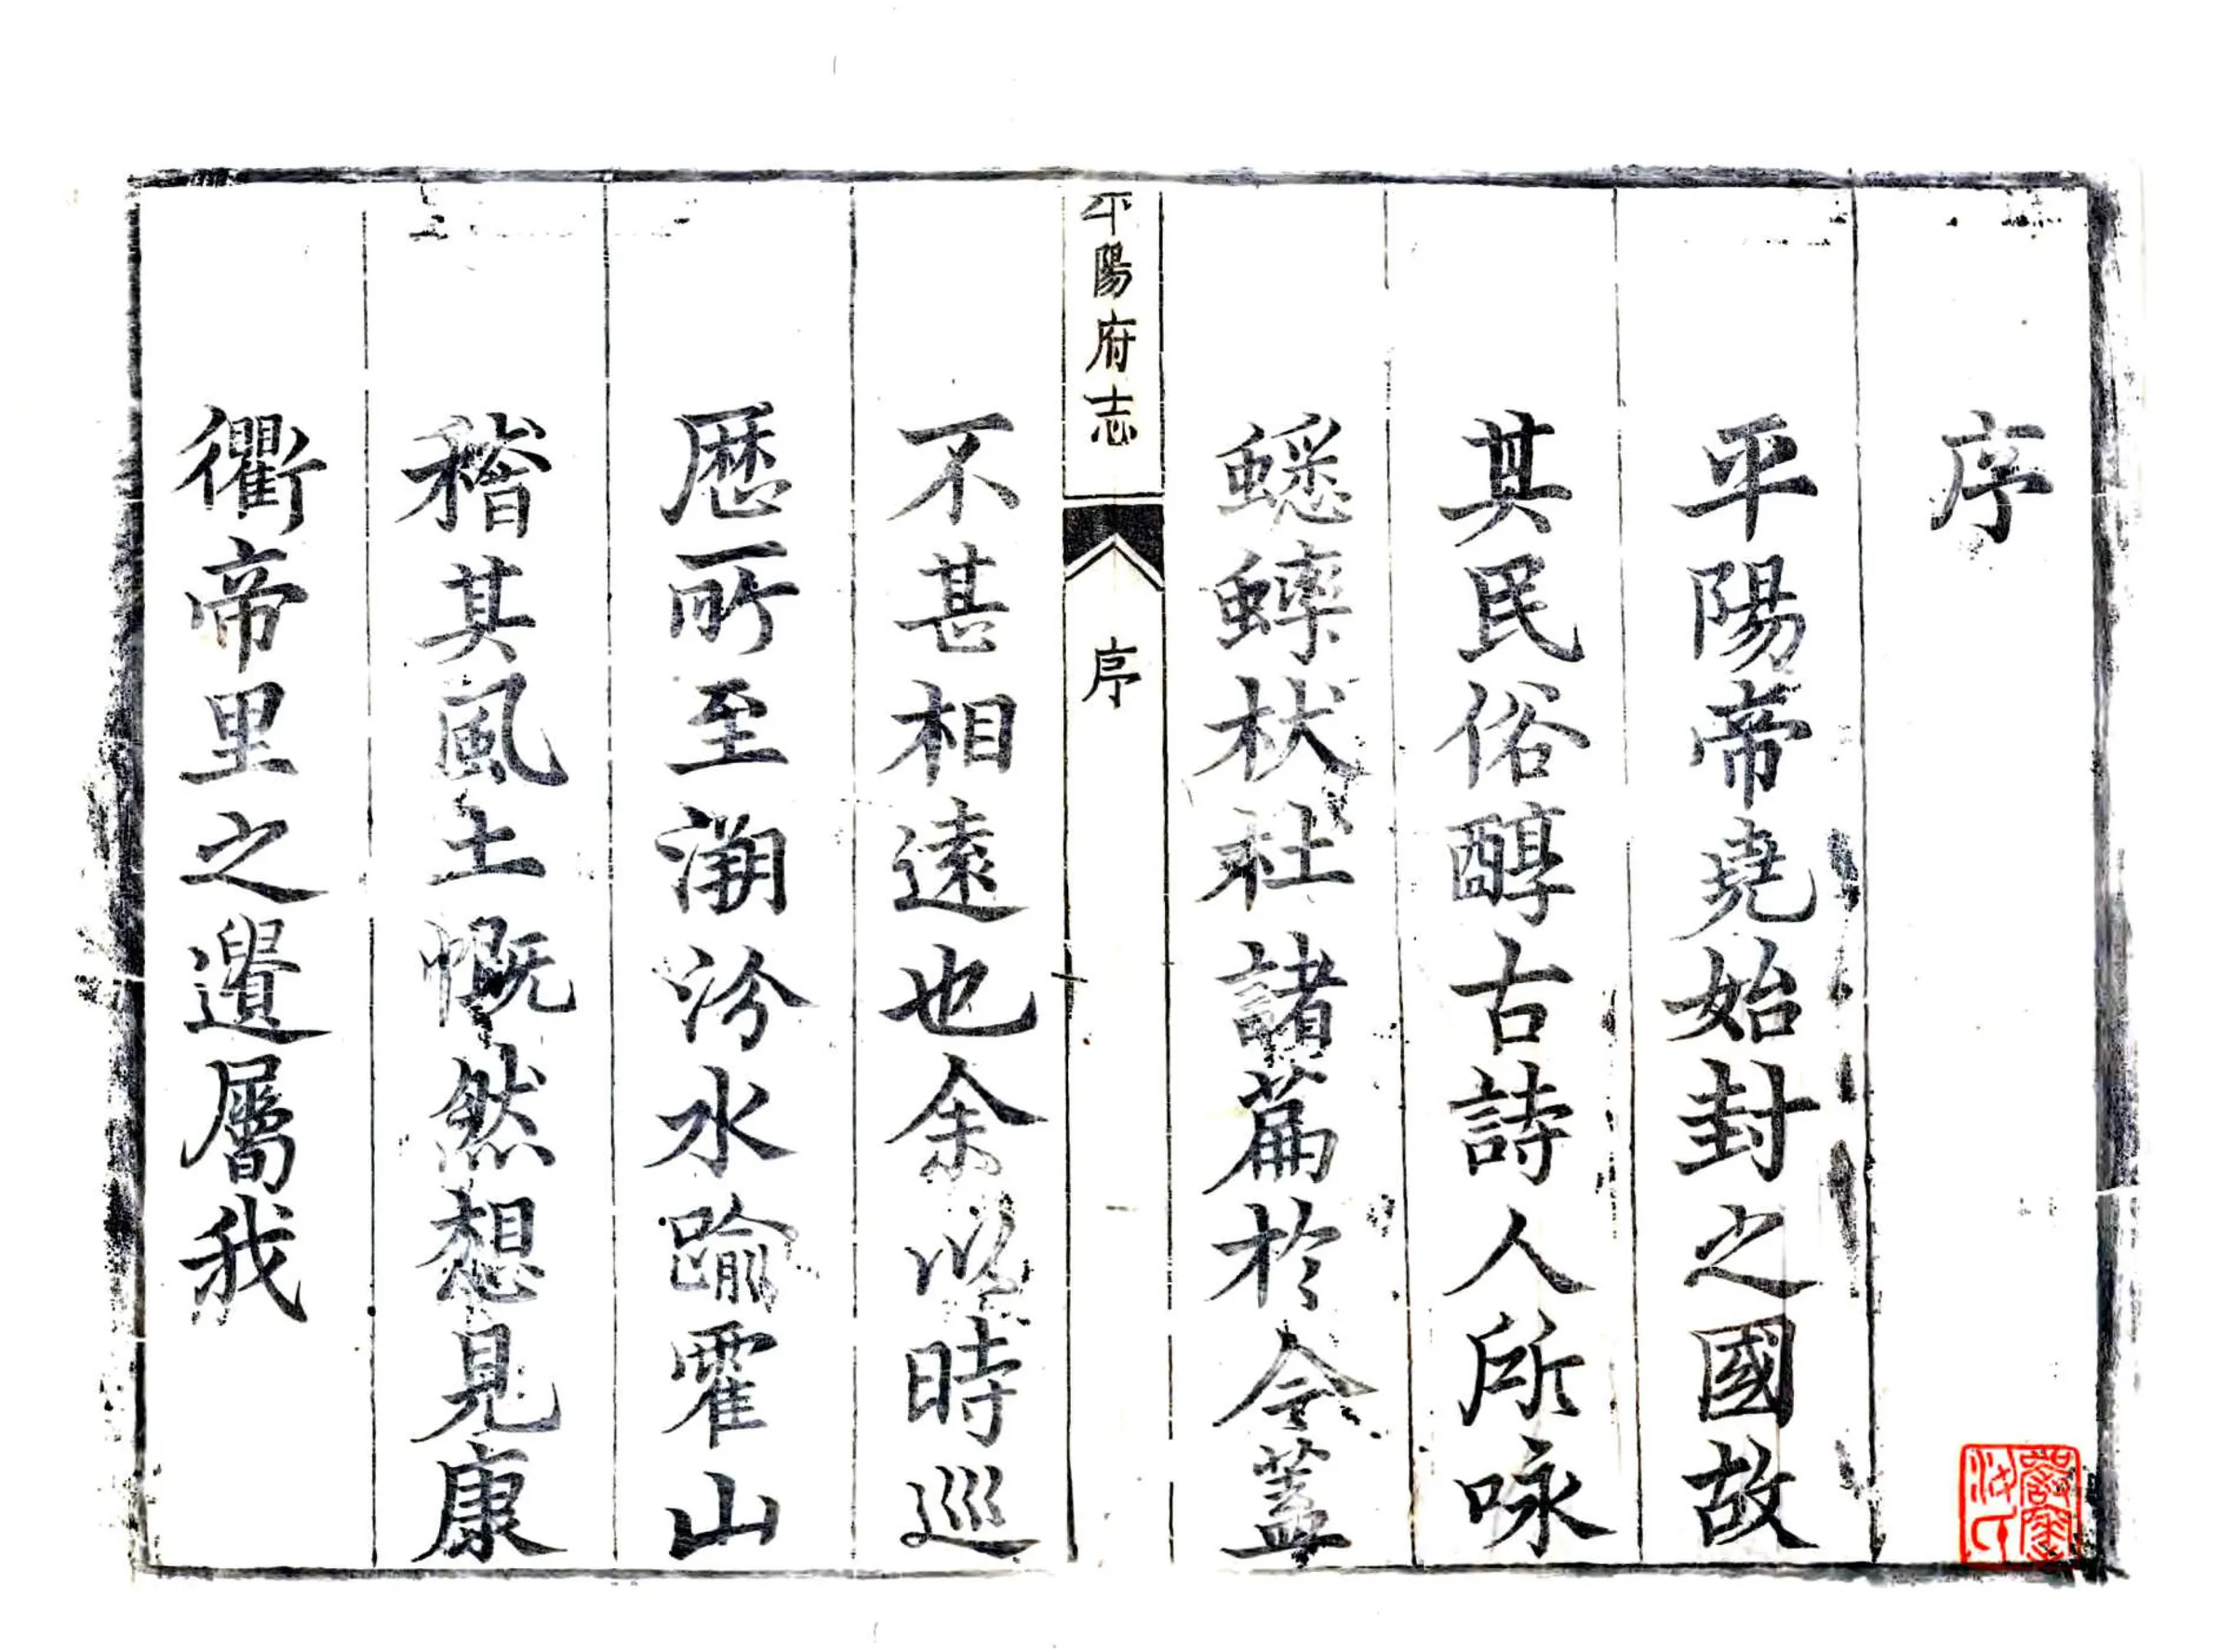 序
平陽帝堯始封之國故
其民俗醇古詩人所咏
蟋蟀杕社諸篇於今蓋
平陽府志
序
不甚相遠也余以時巡
歷所至溯汾水踰霍山
稽其風土慨然想見康
衢帝里之遺屬我